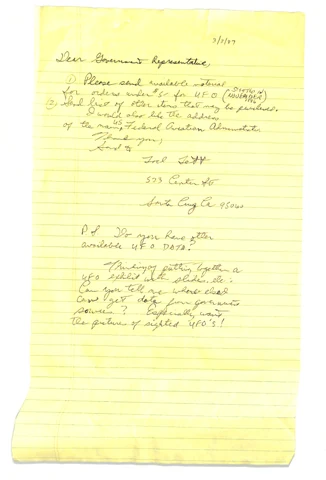 3/2/87
Dear Government Representative,
① Please send available material
for orders under $5 for U.F.O. (SIGHTED IN NOVEMBER
② Send list of other items that may be purchased.
I would also like the address
of the many US Federal Aviation Administrator
Thank you,
Send to
573 Center St
Santa Cruz Ca 95060
P.S. Do you have other
available U.F.O. DATA?
Thinking of putting together a
UFO exhibit with slides, etc.
Can you tell me where else I
can get data from government
sources? Especially want
the picture of sighted UFO'S!